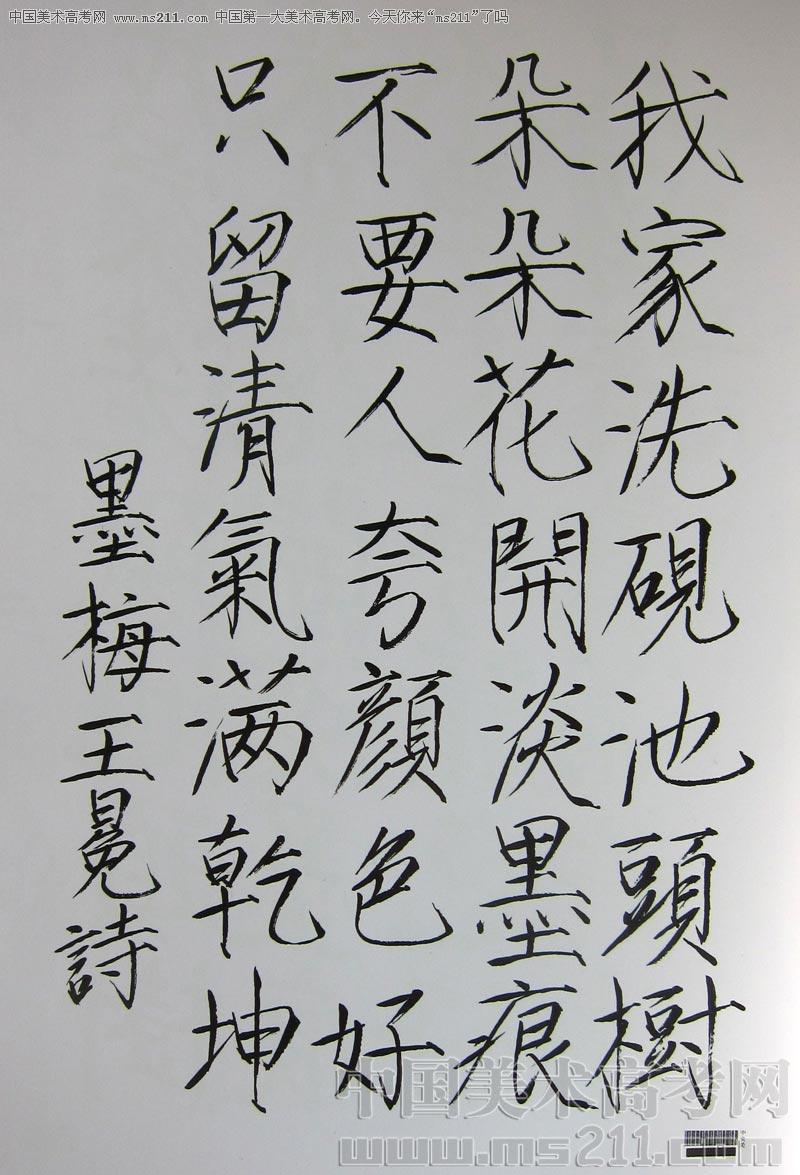 中国美术高考网 www.ms211.com 中国第一大美术高考网。今天你来“ms211”了吗
我家洗硯池頭樹
朵朵花開淡墨痕
不要人夸顔色好
只留清氣满乾坤
墨梅王冕詩
中国美术高考网
www.ms211.com